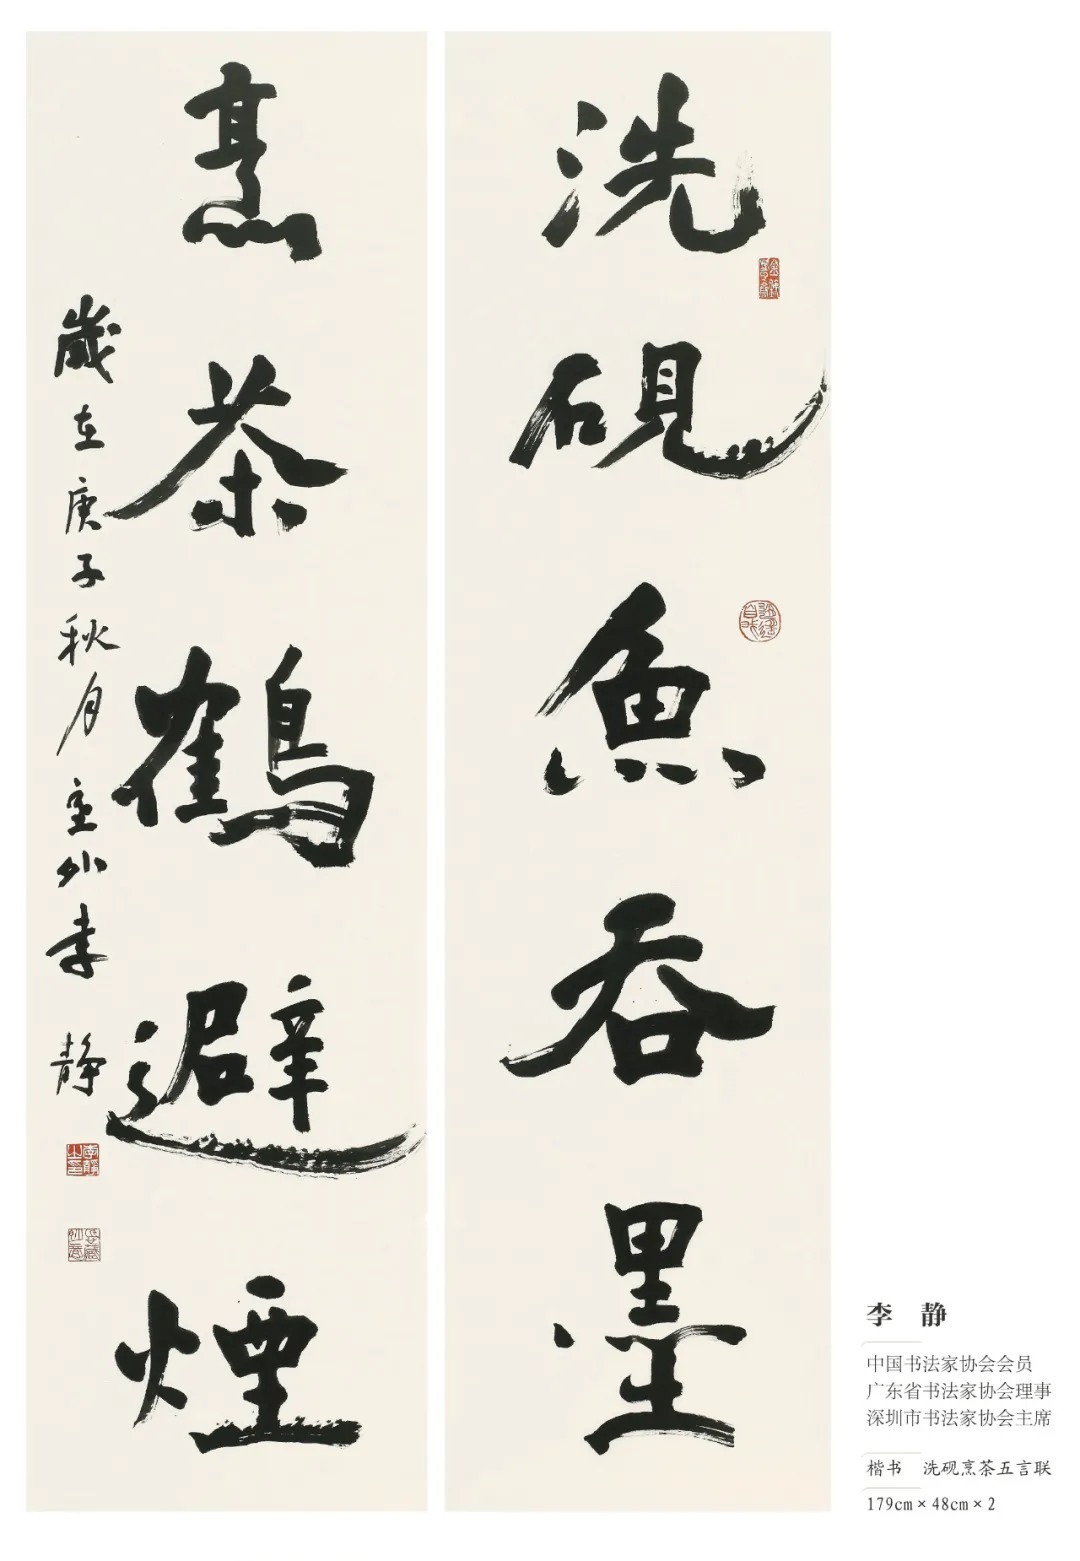 洗砚鱼吞墨
烹茶鹤避烟
歲在庚子秋月
李静
李静
中国书法家协会会员
广东省书法家协会理事
深圳市书法家协会主席
楷书 洗砚烹茶五言联
179cm×48cm×2